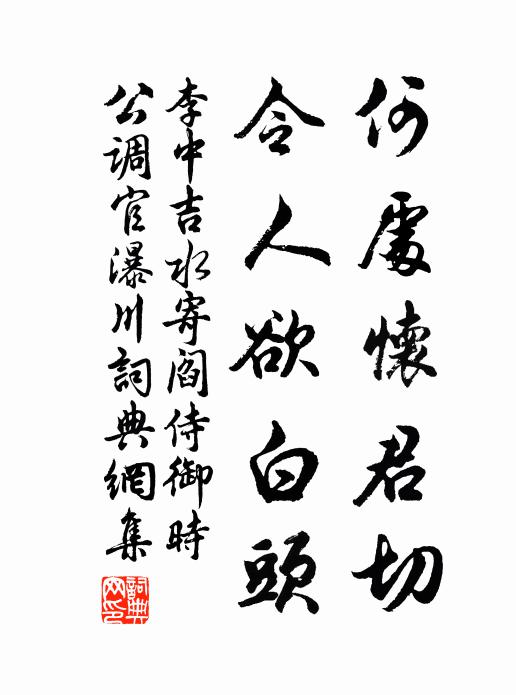 何處懷君切
令人欲白頭
李中吉水寄閻侍御時
公調官瀑川詞典網集
詞典
网印